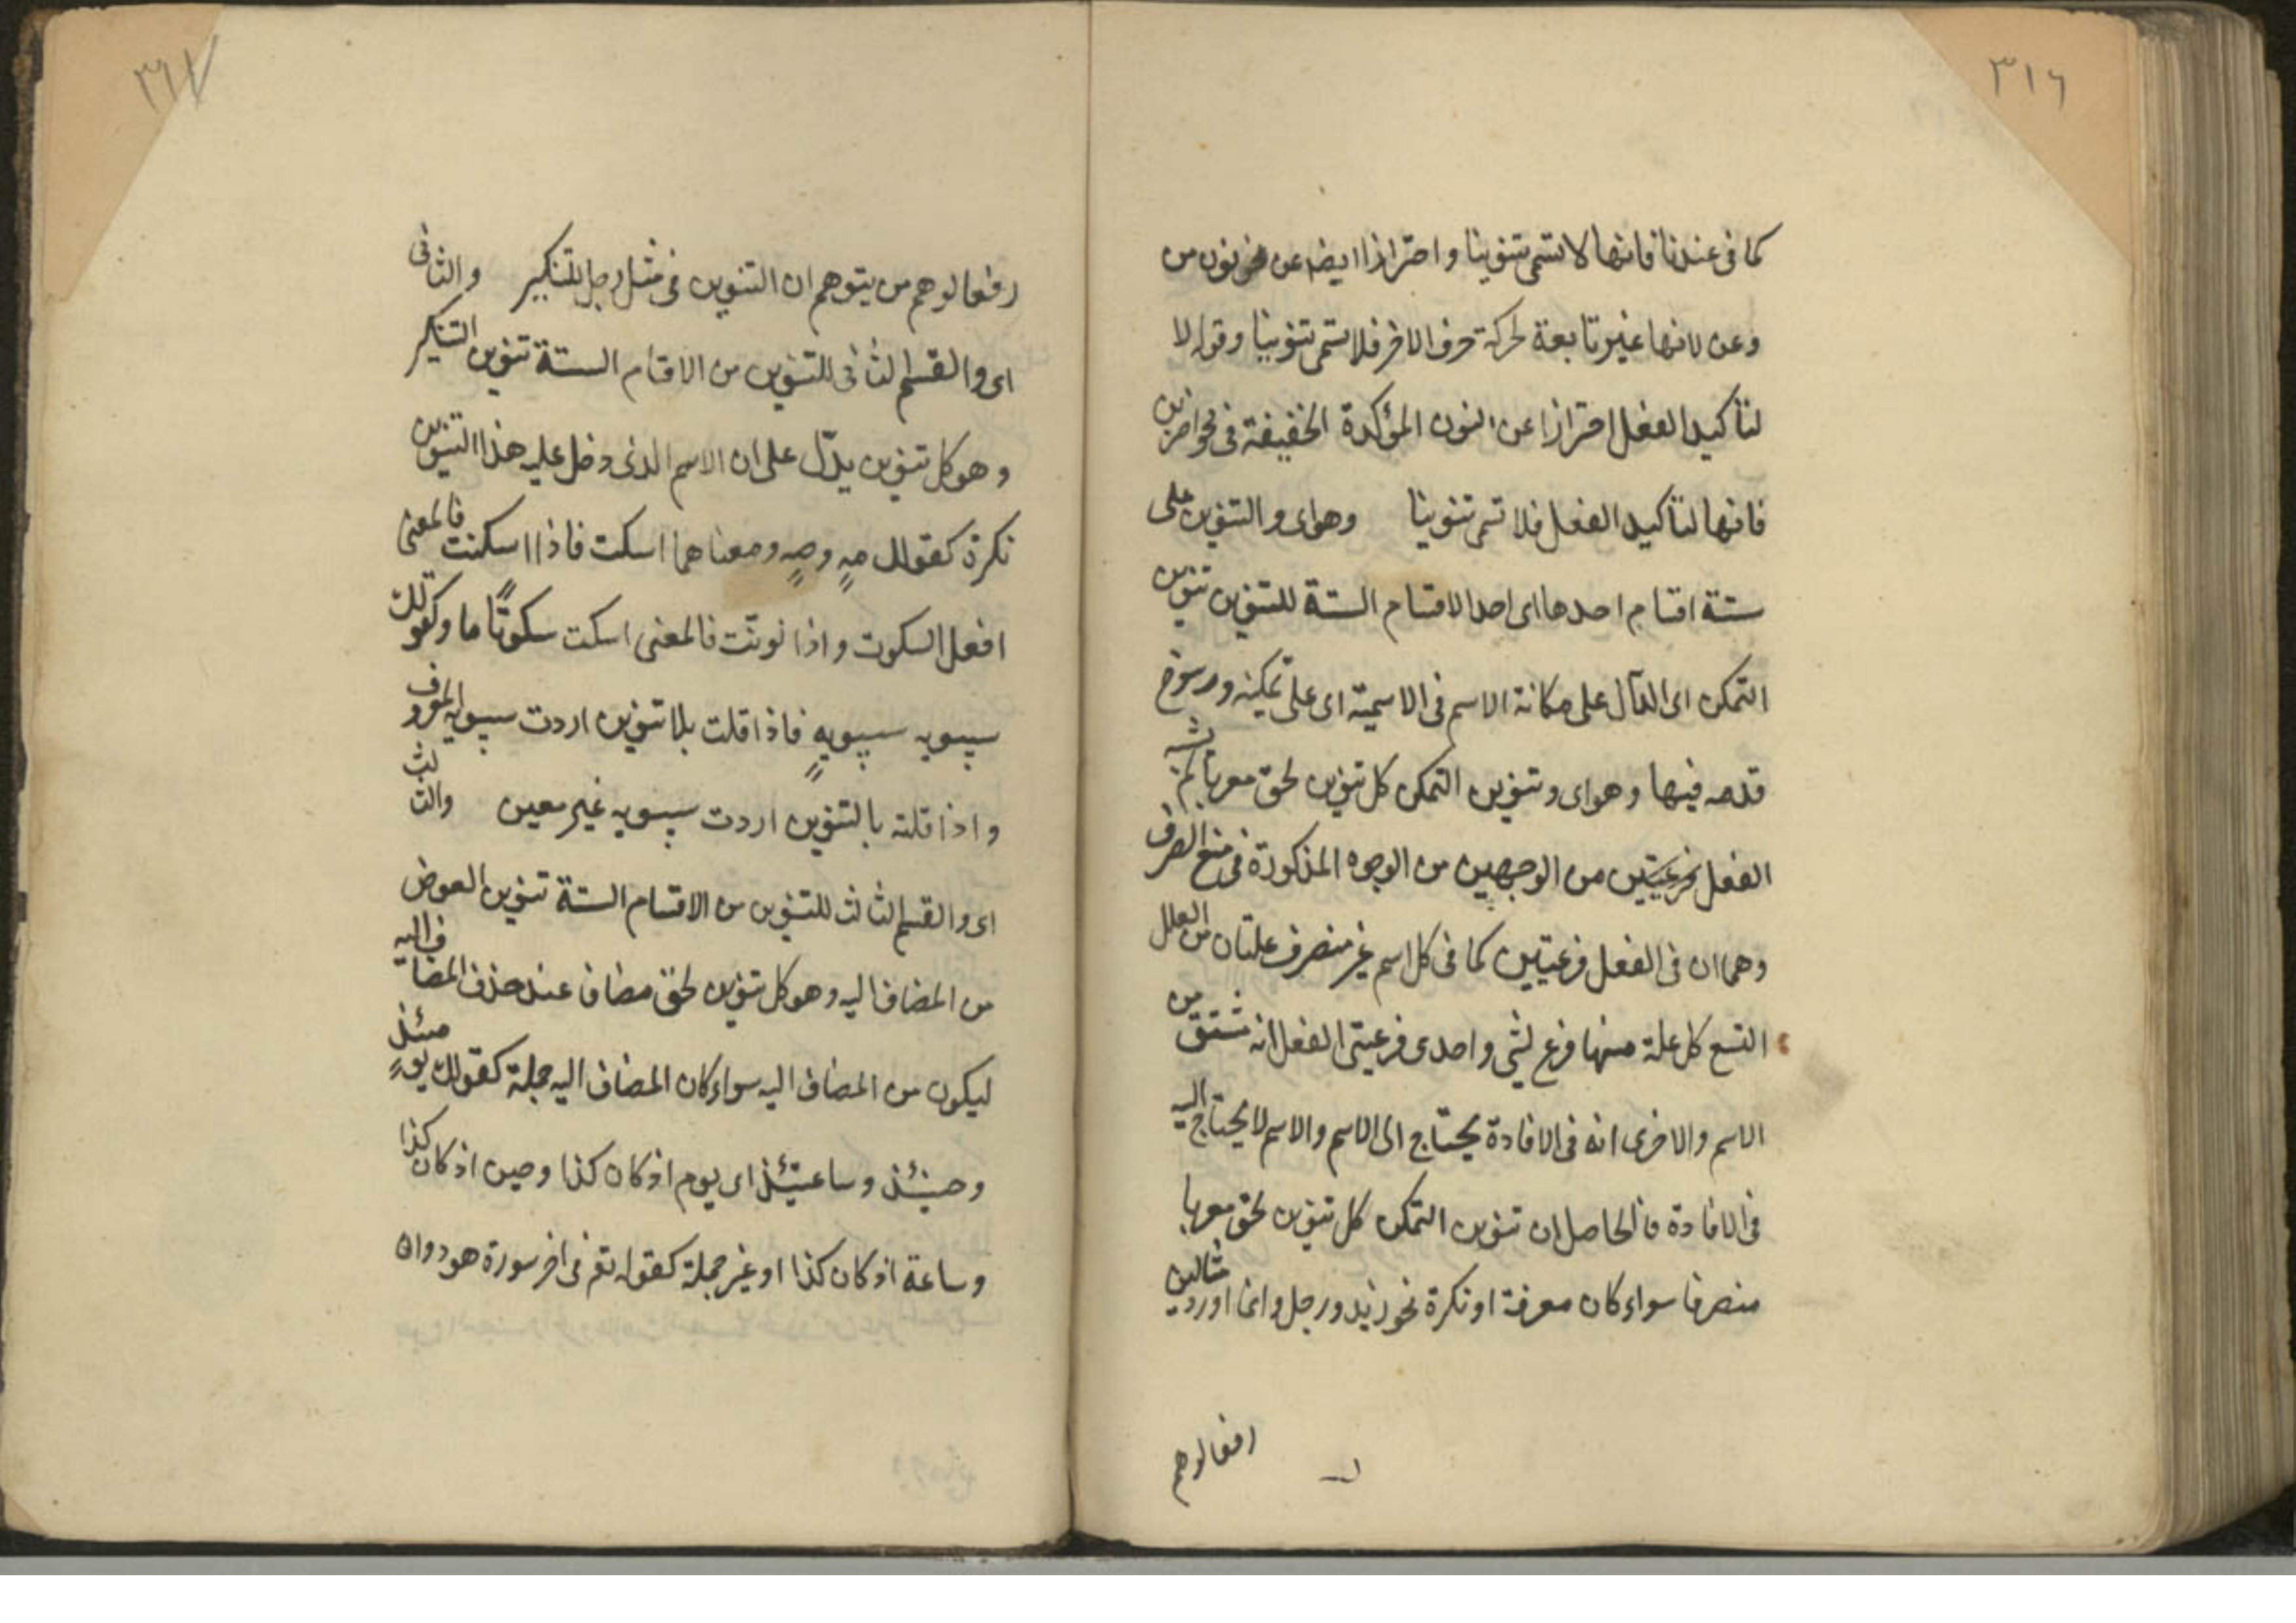 ٣١٦
كما في عندنا فانها لا تسمى تنوينا واحترازا ايضه عن نحو نون من
وعن لانها غير تابعة لحركة حرف الاخر فلا تسمى تنوينا وقوله لا
لتأكيد الفعل احترازا عن النون المؤكدة الخفيفة في نحو اضربن
فانها لتأكيد الفعل فلا تسمى تنوينا وهو اى والتنوين على
ستة اقسام احدها اى احد الاقسام الستة للتنوين تنوين
التمكن اى الدآل على مكانة الاسم في الاسمية اى على تمكينه ورسوخ
قدمه فيها وهو اى وتنوين التمكن كل تنوين لحق معربا لم يشبه
الفعل بفرعيتين من الوجهين من الوجوه المذكورة في منع الصرف
وهما ان في الفعل فرعيتين كما في كل اسم غير منصرف علتان من العلل
التسع كل علة منها فرع لشئ واحدى فرعيتى الفعل انه مشتق من
الاسم والاخرى انه في الافادة يحتاج الى الاسم والاسم لا يحتاج اليه
في الافادة فالحاصل ان تنوين التمكن كل تنوين لحق معربا
منصرفا سواء كان معرفة او نكرة نحو زيد ورجل وانما اورد مثالين
دفعا لوهم
٣١٧
دفعا لوهم من يتوهم ان التنوين في مثل رجل للتنكير والثانى
اى والقسم الثانى للتنوين من الاقسام الستة تنوين التنكير
وهو كل تنوين يدلّ على ان الاسم الذى دخل عليه هذا التنوين
نكرة كقولك مهٍ وصهٍ ومعناهما اسكت فاذا اسكنت فالمعنى
افعل السكوت واذا نونّت فالمعنى اسكت سكوتًا ما وكقولك
سيبويه سيبويهٍ فاذا قلت بلا تنوين اردت سيبويه المعروف
واذا قلته بالتنوين اردت سيبويه غير معين والثالث
اى والقسم الثالث للتنوين من الاقسام الستة تنوين العوض
من المضاف اليه وهو كل تنوين لحق مضاف عند حذف المضاف اليه
ليكون من المضاف اليه سواء كان المضاف اليه جملة كقولك يومئذٍ
وحينئذ وساعتئذ اى يوم اذ كان كذا وحين اذ كان كذا
وساعة اذ كان كذا او غير جملة كقوله تع في اخر سورة هود وان